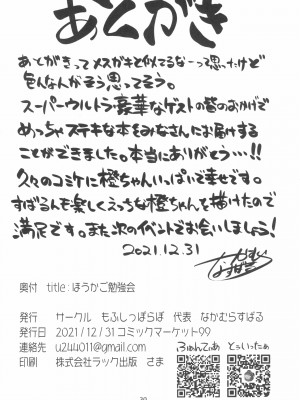 あとがき
あとがきってメスガキと似てるなーって思ったけど
色んなんがそう思ってそう。
スーパーウルトラ豪華なゲストの皆のおかげで
めっちゃステキな本をみなさんにお届けする
ことができました。本当にありがとう…!!
久々のコミケに橙ちゃんいっぱいで幸せです。
すばるんも楽しくえっちな橙ちゃんを描けたので
満足です。また次のイベントでお会いしましょう!
2021.12.31
なかむらすばる
奥付 title:ほうかご勉強会
発行 サークル もふしっぽらぼ 代表 なかむらすばる
発行日 2021/12/31コミックマーケット99
連絡先 u244011@gmail.com
印刷 株式会社ラック出版 さま
ふぁんてぃあ とぅいったぁ
30